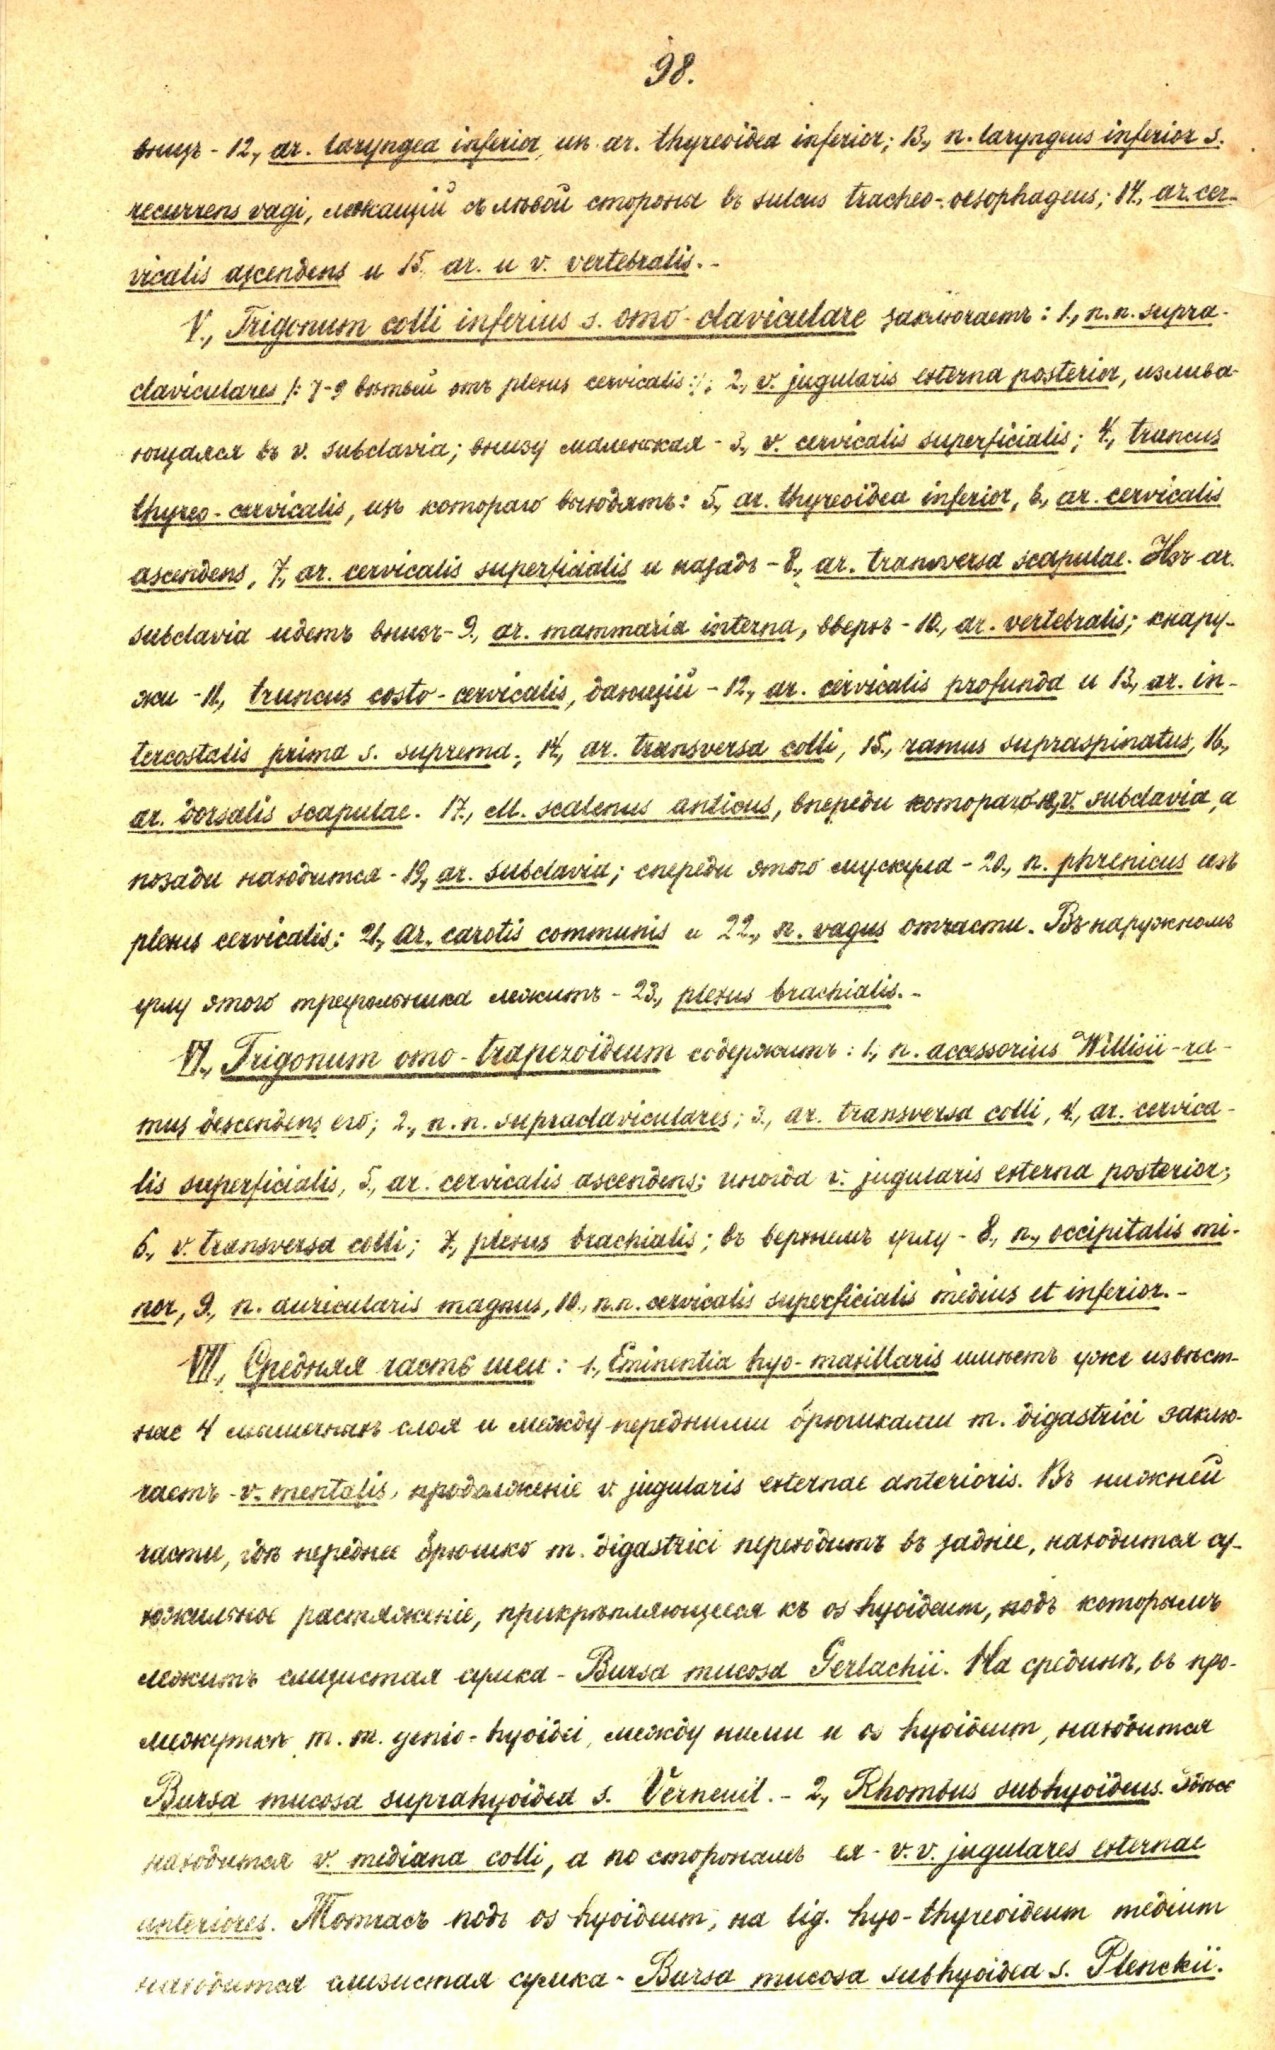 98.
внизъ - 12., ar. laryngea inferior изъ ar. thyreoidea inferior; 13., n. laryngeus inferior s.
recurrens vagi, лежащій съ лѣвой стороны въ sulcus tracheo-oesophageus; 14., ar. cer-
vicalis ascendens и 15. ar. и v. vertebralis. -
V., Trigonum colli inferius s. omo-claviculare заключаетъ: 1., n. n. supra-
claviculares /: 7-9 вѣтвей отъ plexus cervicalis :/; 2., v. jugularis externa posterior, излива-
ющаяся въ v. subclavia; внизу маленькая - 3., v. cervicalis superficialis; 4., truncus
thyreo-cervicalis, изъ котораго выходятъ: 5., ar. thyreoidea inferior, 6., ar. cervicalis
ascendens, 7., ar. cervicalis superficialis и назадъ - 8., ar. transversa scapulae. Изъ ar.
subclavia идетъ внизъ - 9., ar. mammaria interna, вверхъ - 10., ar. vertebralis; кнару-
жи - 11., truncus costo-cervicalis, дающій - 12., ar. cervicalis profunda и 13., ar. in-
tercostalis prima s. suprema; 14., ar. transversa colli, 15., ramus supraspinatus, 16.,
ar. dorsalis scapulae. 17., M. scalenus anticus, впереди котораго 18., v. subclavia, а
позади находится - 19., ar. subclavia; спереди этого мускула - 20., n. phrenicus изъ
plexus cervicalis; 21., ar. carotis communis и 22., n. vagus отчасти. Въ наружномъ
углу этого треугольника лежитъ - 23., plexus brachialis. -
VI., Trigonum omo-trapezoideum содержитъ: 1., n. accessorius Willisii - ra-
mus descendens его; 2., n. n. supraclaviculares; 3., ar. transversa colli, 4., ar. cervica-
lis superficialis, 5., ar. cervicalis ascendens; иногда v. jugularis externa posterior;
6., v. transversa colli; 7., plexus brachialis; въ верхнемъ углу - 8., n., occipitalis mi-
nor, 9., n. auricularis magnus, 10., n. n. cervicalis superficialis medius et inferior. -
VII., Средняя часть шеи: 1., Eminentia hyo-maxillaris имѣетъ уже извѣст-
ные 4 мышечныхъ слоя и между передними брюшками m. digastrici заклю-
чаетъ - v. mentalis, продолженіе v. jugularis externae anterioris. Въ нижней
части, гдѣ переднее брюшко m. digastrici переходитъ въ заднее, находится су-
хожильное растяженіе, прикрѣпляющееся къ os hyoideum, подъ которымъ
лежитъ слизистая сумка - Bursa mucosa Gerlachii. На срединѣ, въ про-
межуткѣ m. m. genio-hyoidei, между ними и os hyoideum, находится
Bursa mucosa suprahyoidea s. Verneuil. - 2., Rhombus subhyoideus. Здѣсь
находится v. mediana colli, а по сторонамъ ея - v. v. jugulares externae
anteriores. Тотчасъ подъ os hyoideum, на lig. hyo-thyreoideum medium
находится слизистая сумка - Bursa mucosa subhyoidea s. Plenckii.